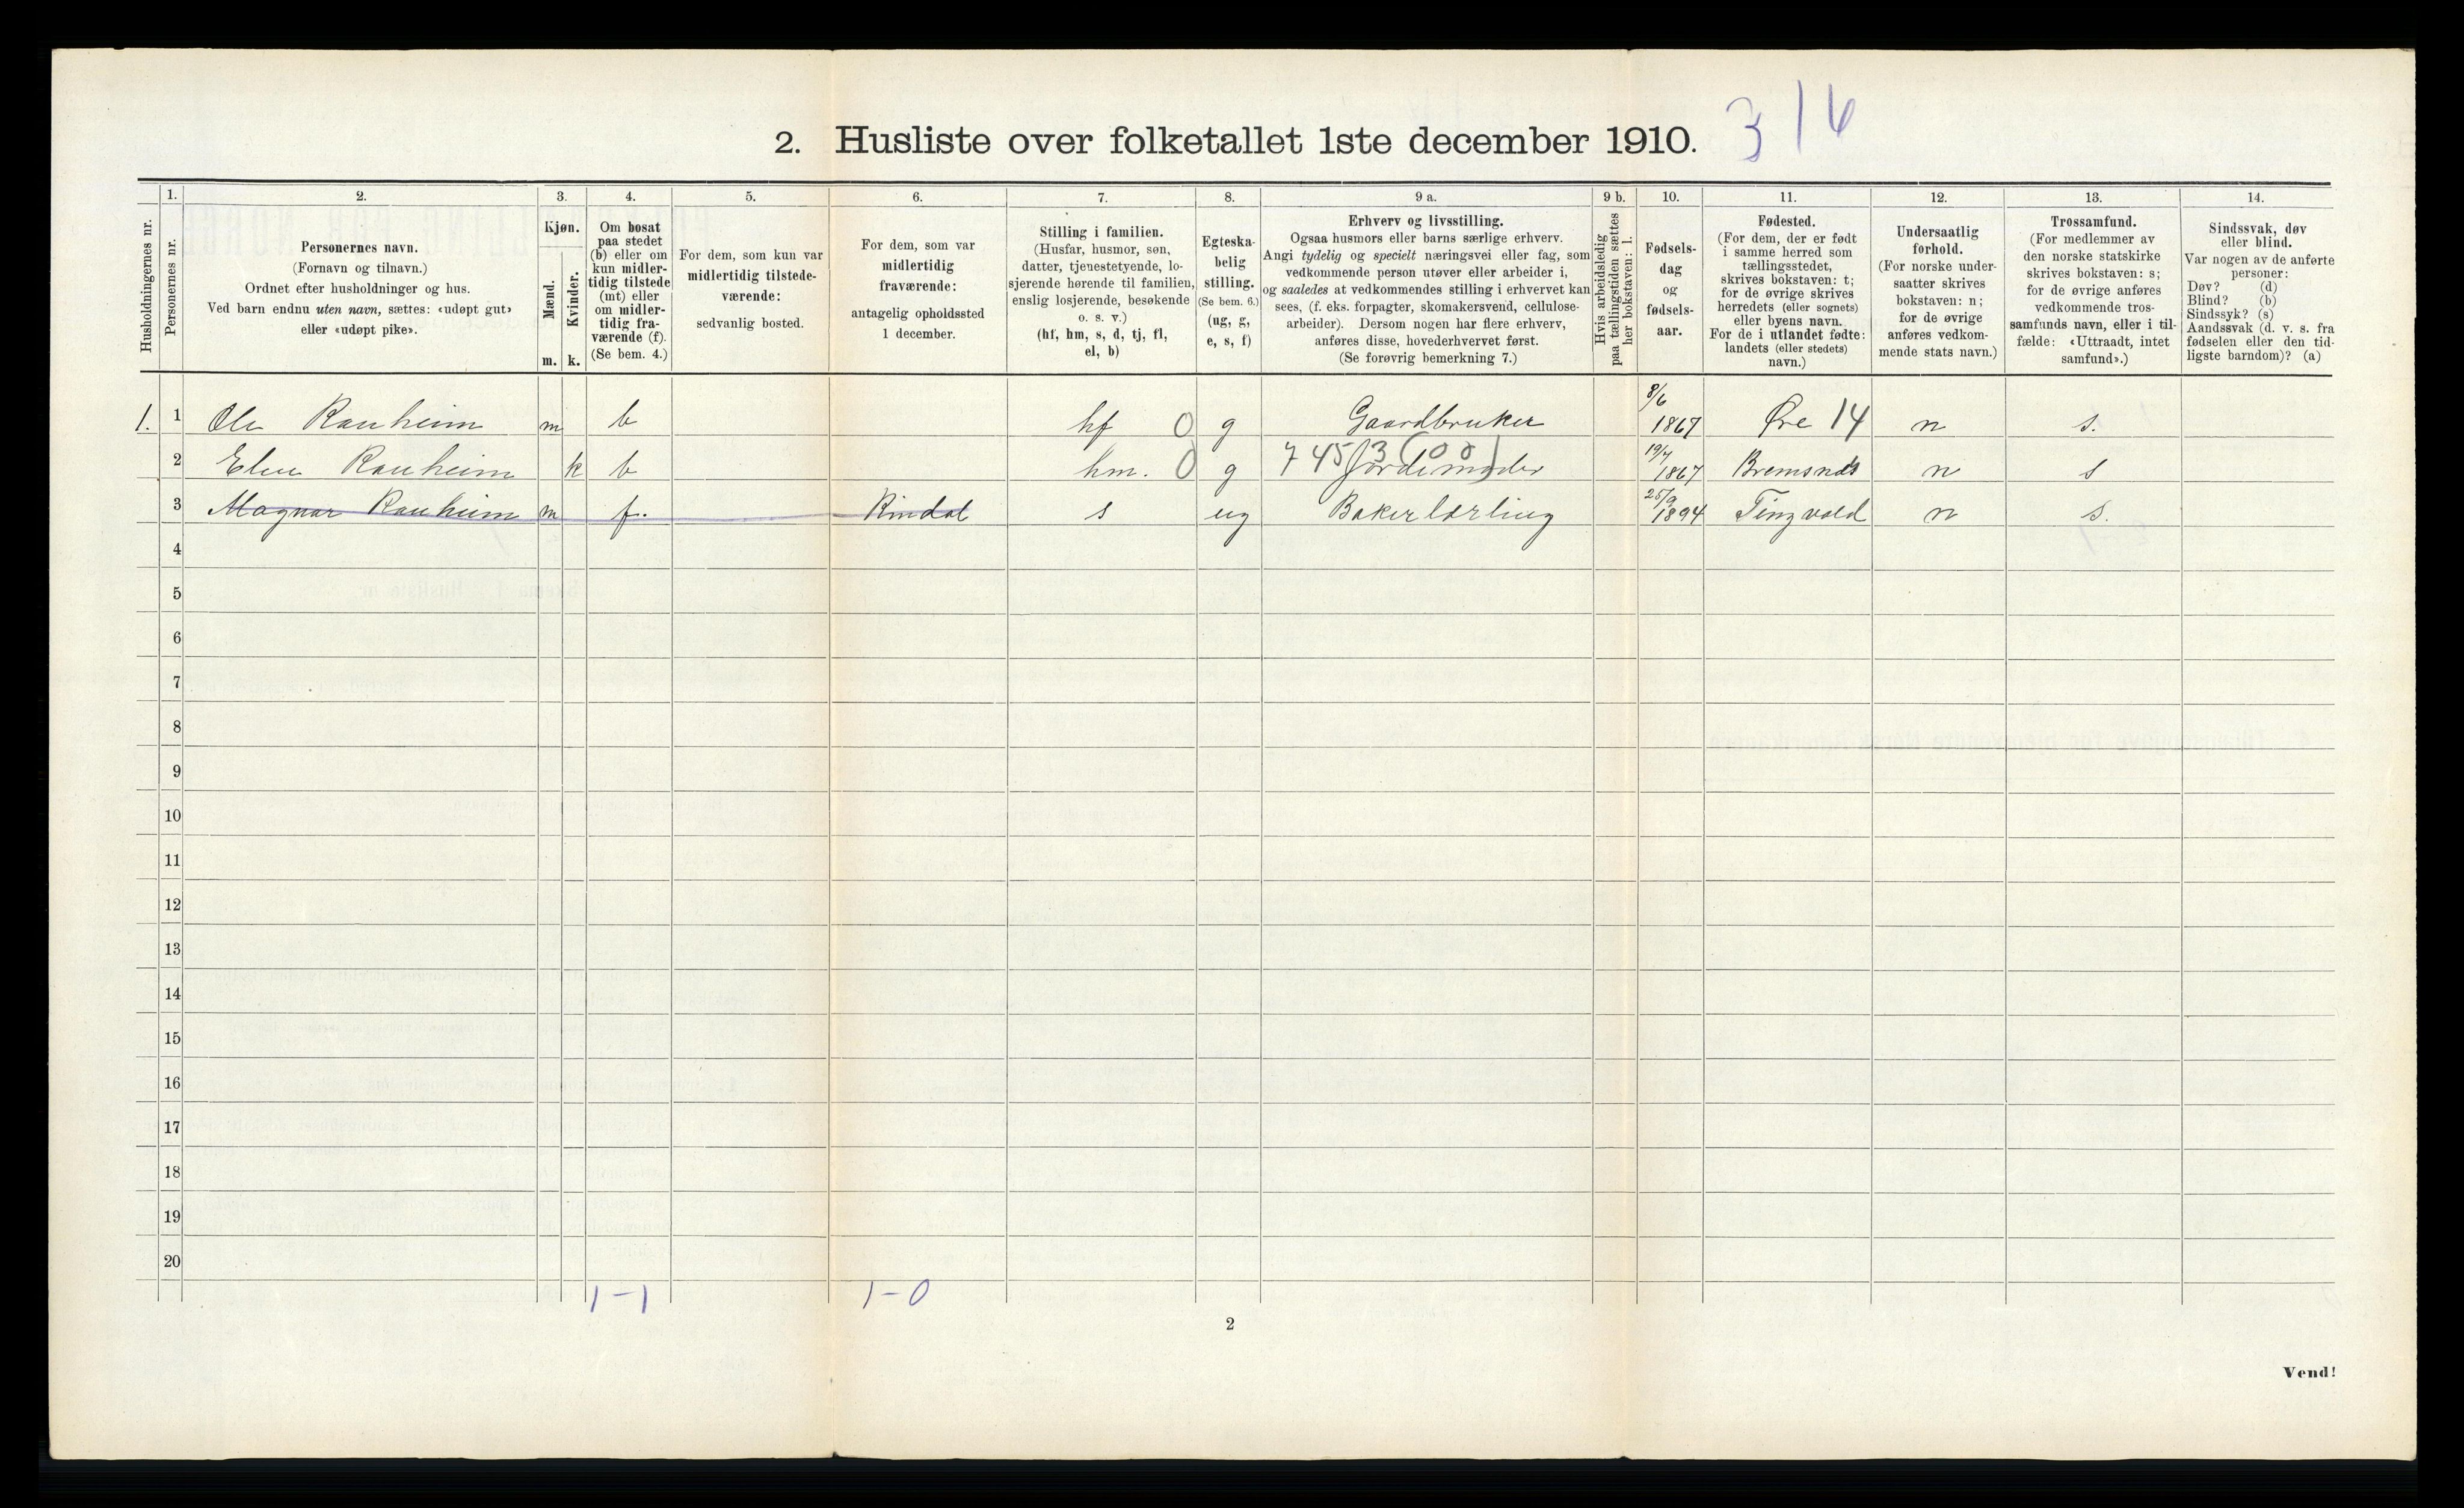 2. Husliste over folketallet 1ste december 1910. 3 16
Husholdningernes nr.
1.
Personernes nr.
2.
Personernes navn.
(Fornavn og tilnavn.)
Ordnet efter husholdninger og hus.
Ved barn endnu uten navn, sættes: «udøpt gut»
eller «udøpt pike».
3.
Kjøn.
Mænd.
Kvinder.
m. k.
4.
Om bosat
paa stedet
(b) eller om
kun midler-
tidig tilstede
(mt) eller
om midler-
tidig fra-
værende (f).
(Se bem. 4.)
5.
For dem, som kun var
midlertidig tilstede-
værende:
sedvanlig bosted.
6.
For dem, som var
midlertidig
fraværende:
antagelig opholdssted
1 december.
7.
Stilling i familien.
(Husfar, husmor, søn,
datter, tjenestetyende, lo-
sjerende hørende til familien,
enslig losjerende, besøkende
o. s. v.)
(hf, hm, s, d, tj, fl,
el, b)
8.
Egteska-
belig
stilling.
(Se bem. 6.)
(ug, g,
e, s, f)
9 a.
Erhverv og livsstilling.
Ogsaa husmors eller barns særlige erhverv.
Angi tydelig og specielt næringsvei eller fag, som
vedkommende person utøver eller arbeider i,
og saaledes at vedkommendes stilling i erhvervet kan
sees, (f. eks. forpagter, skomakersvend, cellulose-
arbeider). Dersom nogen har flere erhverv,
anføres disse, hovederhvervet først.
(Se forøvrig bemerkning 7.)
9 b.
Hvis arbeidsledig
paa tællingstiden sættes
her bokstaven: l.
10.
Fødsels-
dag
og
fødsels-
aar.
11.
Fødested.
(For dem, der er født
i samme herred som
tællingsstedet,
skrives bokstaven: t;
for de øvrige skrives
herredets (eller sognets)
eller byens navn.
For de i utlandet fødte:
landets (eller stedets)
navn.)
12.
Undersaatlig
forhold.
(For norske under-
saatter skrives
bokstaven: n;
for de øvrige
anføres vedkom-
mende stats navn.)
13.
Trossamfund.
(For medlemmer av
den norske statskirke
skrives bokstaven: s;
for de øvrige anføres
vedkommende tros-
samfunds navn, eller i til-
fælde: «Uttraadt, intet
samfund».)
14.
Sindssvak, døv
eller blind.
Var nogen av de anførte
personer:
Døv? (d)
Blind? (b)
Sindssyk? (s)
Aandssvak (d. v. s. fra
fødselen eller den tid-
ligste barndom)? (a)
1. 1 Ole Ranheim m b hf 0 g Gaardbruker 8/6 1867 Øre 14 n s.
2 Elen Ranheim k b hm. 0 g 7453 (00) Jordemoder 19/7 1867 Bremsnæs n s
3 Magnar Ranheim m f. Rindal s ug Bakerlærling 25/9 1894 Tingvold n s.
4
5
6
7
8
9
10
11
12
13
14
15
16
17
18
19
20
1-1 1-0
2
Vend!